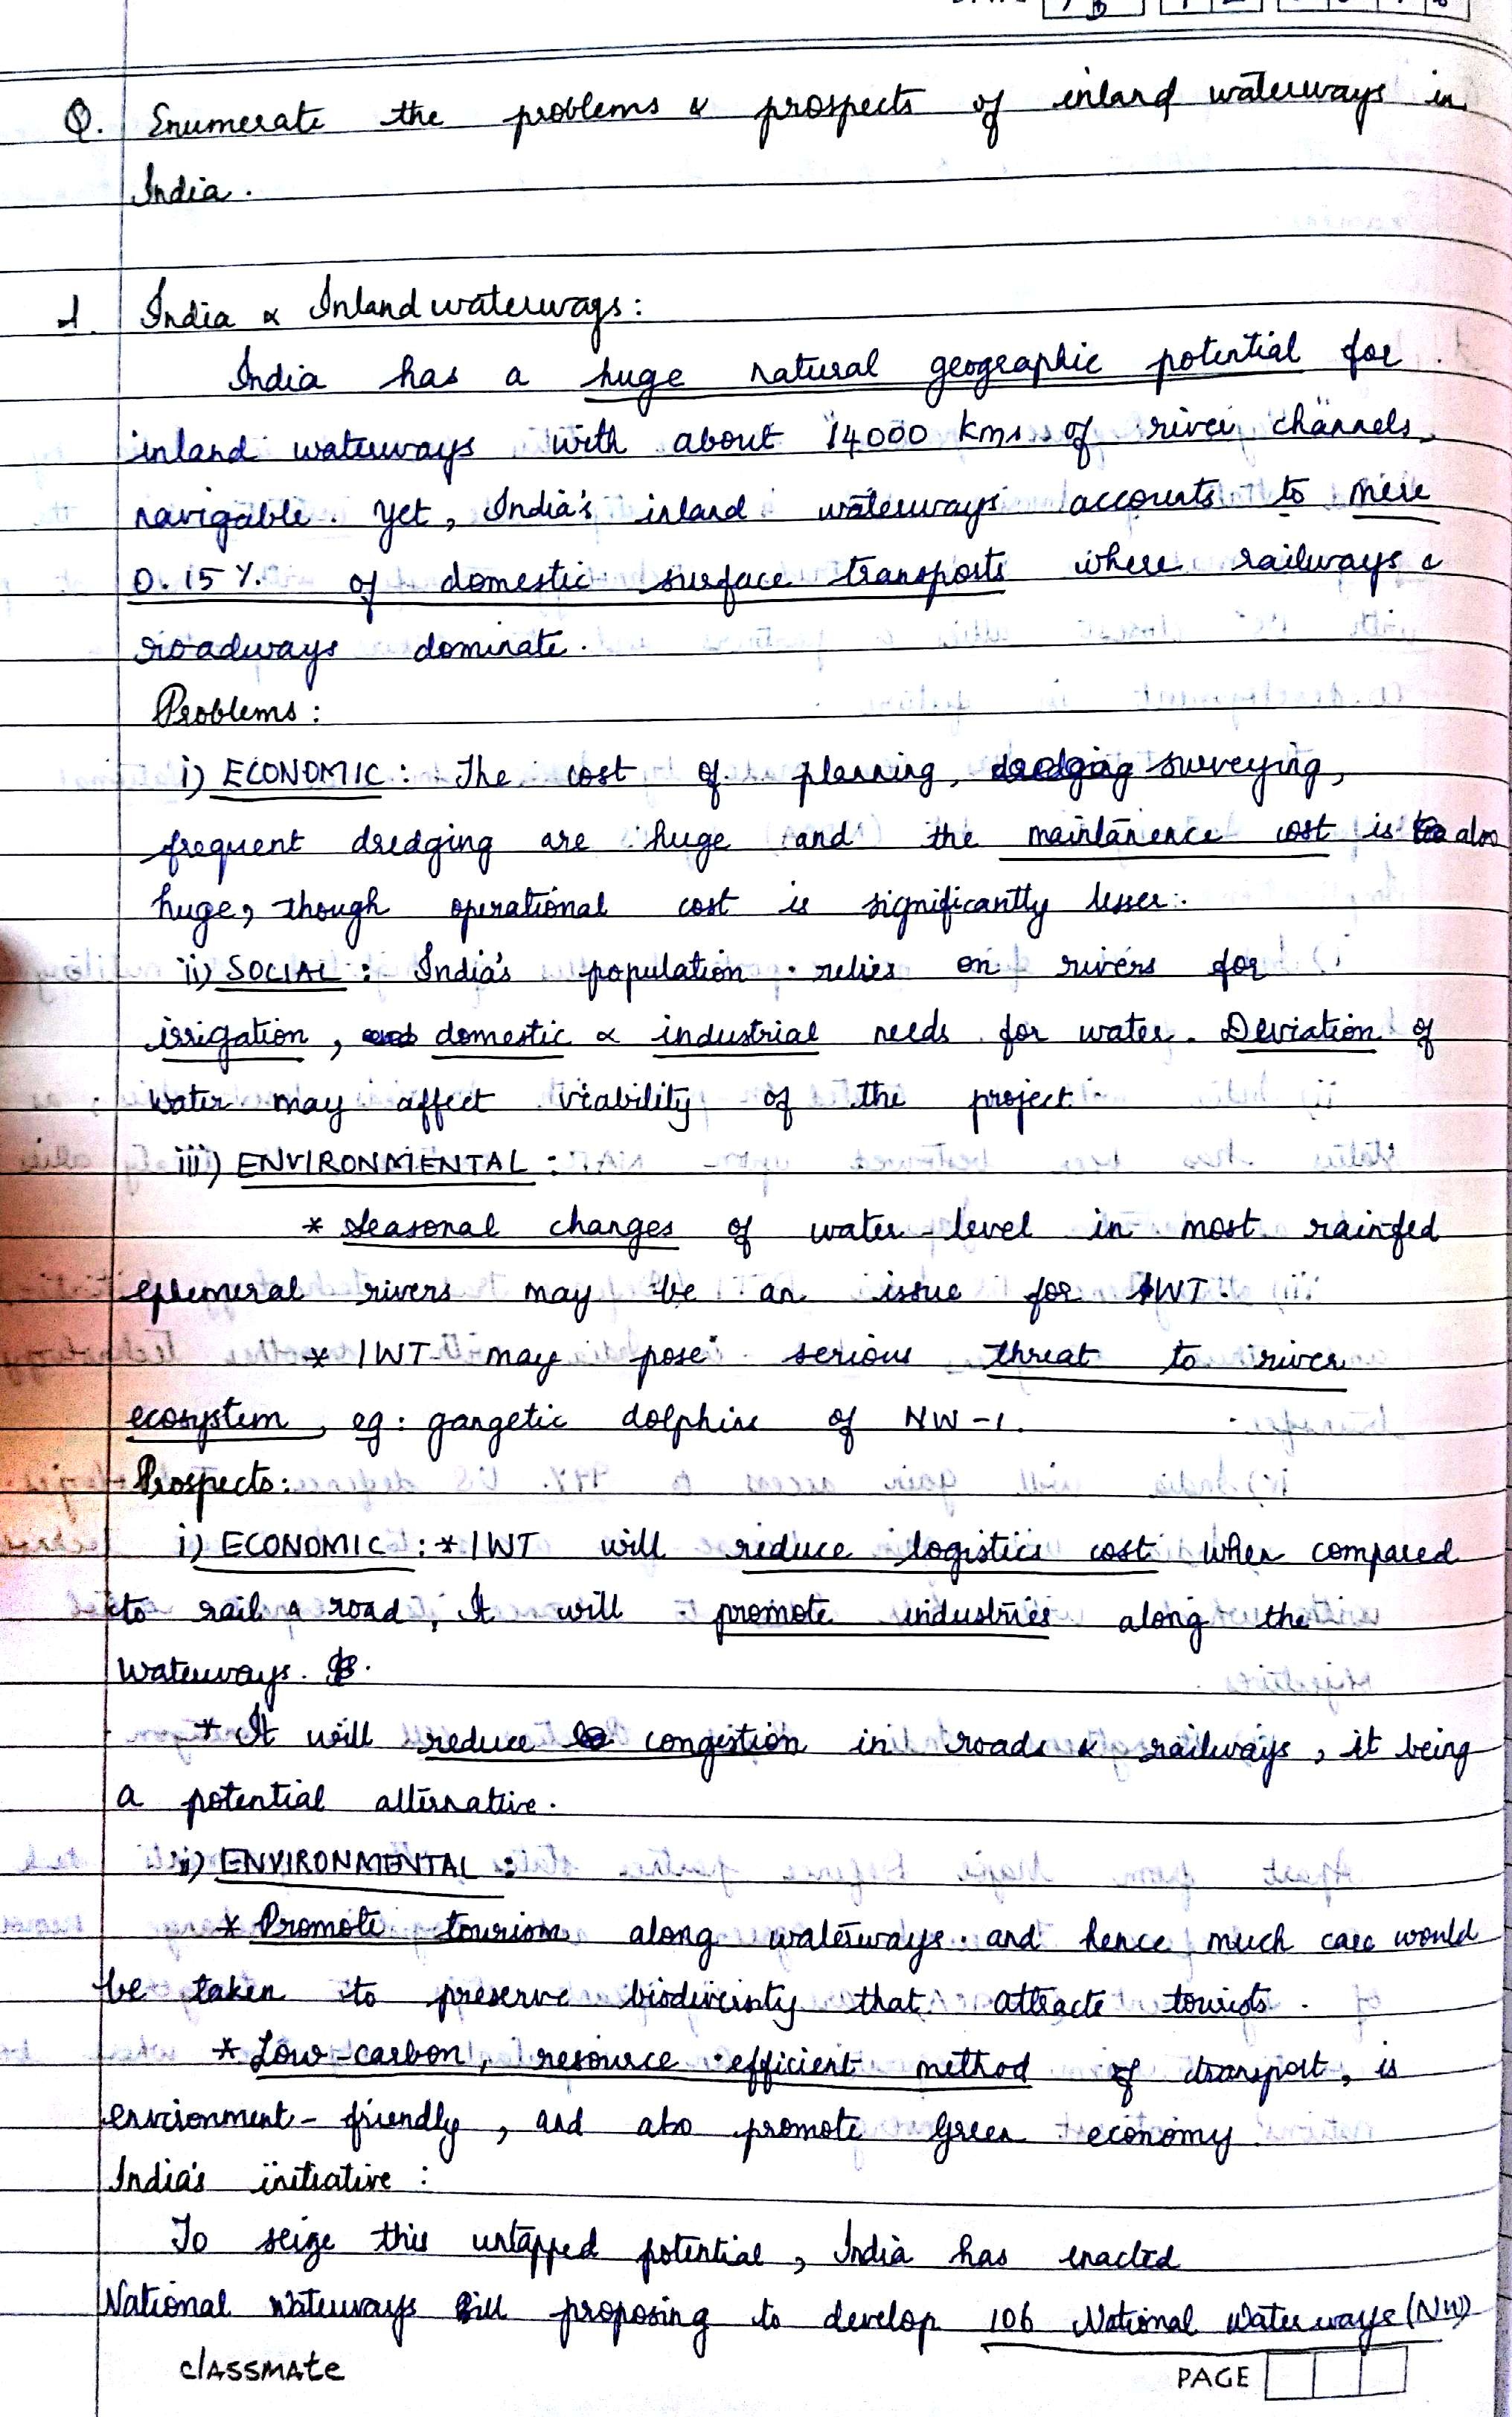 Q. Enumerate the problems & prospects of inland waterways in
India.
1. India & Inland waterways:
India has a huge natural geographic potential for
inland waterways with about 14000 kms of river channels
navigable. Yet, India's inland waterways accounts to mere
0.15% of domestic surface transports where railways &
roadways dominate.
Problems:
i) ECONOMIC: The cost of planning, surveying,
frequent dredging are huge and the maintanence cost is also
huge, though operational cost is significantly lesser.
ii) SOCIAL: India's population relies on rivers for
irrigation, domestic & industrial needs for water. Deviation of
water may affect viability of the project.
iii) ENVIRONMENTAL:
* Seasonal changes of water-level in most rainfed
ephemeral rivers may be an issue for IWT.
* IWT may pose serious threat to river
ecosystem, eg: gangetic dolphins of NW-1.
Prospects:
i) ECONOMIC: * IWT will reduce logistics cost when compared
to rail & road, It will promote industries along the
waterways.
* It will reduce congestion in roads & railways, it being
a potential alternative.
ii) ENVIRONMENTAL:
* Promote tourism along waterways and hence much care would
be taken to preserve biodiversity that attracts tourists.
* Low-carbon, resource efficient method of transport, is
environment-friendly, and also promote Green economy.
India's initiative:
To seize this untapped potential, India has enacted
National Waterways Bill proposing to develop 106 National Waterways (NW)
classmate
PAGE